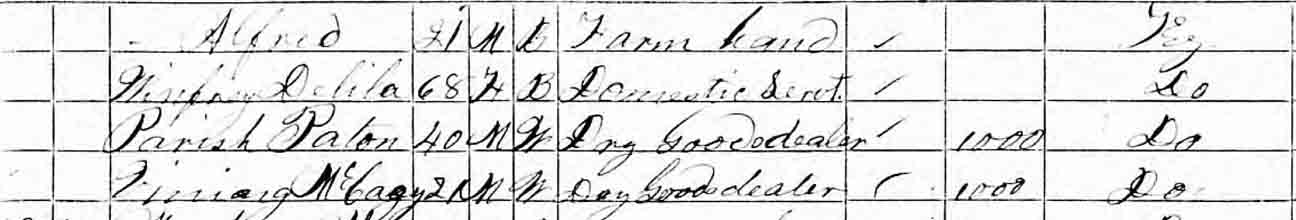 - Alfred 21 M B Farm hand / Ky
Winfrey Delila 68 F B Domestic Servt. / Do
Parish Paton 40 M W Dry Goods dealer / 1000 Do
McCagy 21 M W Dry Goods dealer / 1000 Do